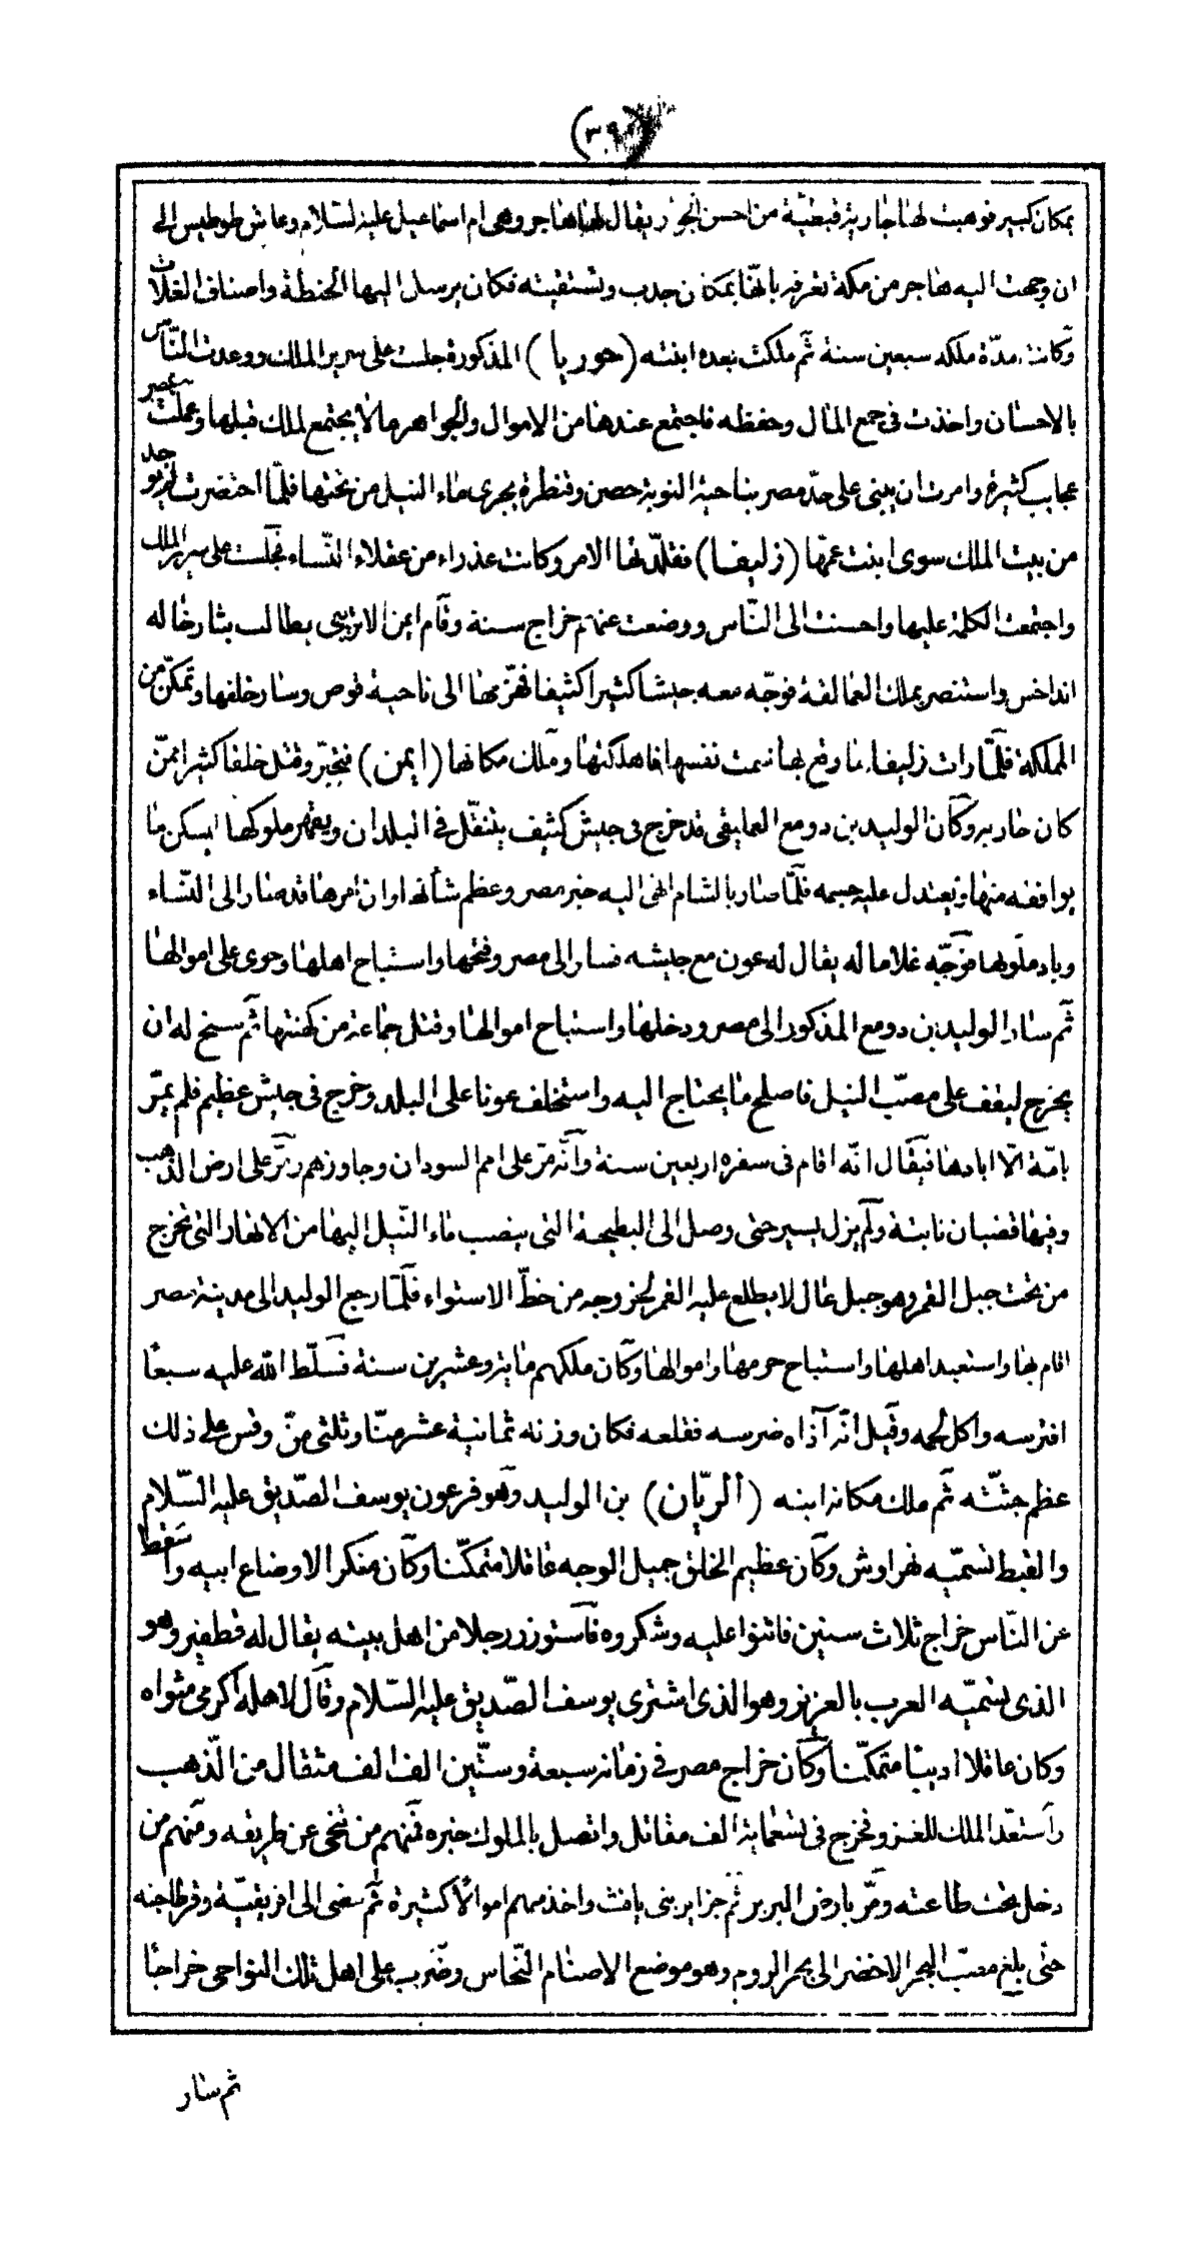 (٣٠٩)
بمكان كبير فوهبت لها جارية قبطية من احسن الجوار يقال لها هاجر وهى ام اسماعيل عليه السلام وعاش طوطيس الى
ان وجهت اليه هاجر من مكة تعرفه بانها بمكان جدب وتستقيته فكان يرسل اليها الحنطة واصناف الغلات
وكانت مدّة ملكه سبعين سنة ثم ملكت بعده ابنته (حوريا) المذكورة جلست على سرير الملك ووعدت النّاس
بالاحسان واخذت فى جمع المال وحفظه فاجتمع عندها من الاموال والجواهر ما لا يجتمع لملك قبلها وعملت بمصر
عجايب كثيرة وامرت ان يبنى على حدّ مصر بناحية النوبة حصن وقنطرة يجرى ماء النيل من تحتها فلمّا احتضرت لم يوجد
من بيت الملك سوى ابنت عمّها (زليفا) فقلّدتها الامر وكانت عذراء من عقلاء النّساء فجلست على سرير الملك
واجتمعت الكلمة عليها واحسنت الى النّاس ووضعت عنهم خراج سنة وقام ايمن الاتريبى يطالب بثار خاله
انداخس واستنصر بملك العمالقة فوجّه معه جيشا كثيرا كثيفا فهزمها الى ناحية قوص وسار خلفها وتمكّن من
المملكة فلمّا رات زليفا ما وقع بها سمت نفسها فاهلكتها وملك مكانها (ايمن) فتجبّر وقتل خلقا كثيرا ممّن
كان حاربه وكان الوليد بن دومع العمليقى قد خرج فى جيش كثيف يتنقّل فى البلدان ويقهر ملوكها ليسكن ما
يوافقه منها ويعتدل عليه جسمه فلمّا صار بالشام انهى اليه خبر مصر وعظم شأنها وان امرها قد صار الى النّساء
وباد ملوكها فوجّه غلاما له يقال له عون مع جيشه فسار الى مصر وفتحها واستباح اهلها وحوى على اموالها
ثم سار الوليد بن دومع المذكور الى مصر ودخلها واستباح اموالها وقتل جماعة من كهنتها ثم سنح له ان
يخرج ليقف على مصبّ النيل فاصلح ما يحتاج اليه واستخلف عونا على البلد وخرج فى جيش عظيم فلم يمرّ
بامّة الّا ابادها فيقال انّه اقام فى سفره اربعين سنة وانّه مرّ على امم السودان وجاوزهم ومرّ على ارض الذهب
وفيها قضبان نابتة ولم يزل يسير حتى وصل الى البطيحة التى ينصب ماء النّيل اليها من الانهار التى تخرج
من تحت جبل القمر وهو جبل عال لا يطلع عليه القمر لخروجه من خطّ الاستواء فلمّا رجع الوليد الى مدينة مصر
اقام بها واستعبد اهلها واستباح حرمها واموالها وكان ملكهم مايه وعشرين سنة فسلّط الله عليه سبعا
افترسه واكل لحمه وقيل انّه آذاه ضرسه فقلعه فكان وزنه ثمانية عشر منّا وثلثى منّ وقس على ذلك
عظم جثّته ثم ملك مكانه ابنه (الريّان) بن الوليد وهو فرعون يوسف الصّديق عليه السّلام
والقبط تسمّيه نهراوش وكان عظيم الخلق جميل الوجه عاقلا متمكّنا وكان منكر الاوضاع ابيه واسقط
عن النّاس خراج ثلاث سنين فاثنوا عليه وشكروه فاستوزر رجلا من اهل بيته يقال له قطفير وهو
الذى تسميّه العرب بالعزيز وهو الذى اشترى يوسف الصّديق عليه السّلام وقال لاهله اكرمى مثواه
وكان عاقلا اديبا متمكّنا وكان خراج مصر فى زمانه سبعة وستّين الف الف مثقال من الذّهب
واستعدّ الملك للغزو فخرج فى تسعماية الف مقاتل واتصل بالملوك خبره فمنهم من تنحى عن طريقه ومنهم من
دخل تحت طاعته ومرّ بارض البربر ثم جزاير بنى يافث واخذ منهم اموالا كثيرة ثم مضى الى افريقيّة وقرطاجنه
حتى بلغ مصبّ البحر الاخضر الى بحر الروم وهو موضع الاصنام النّحاس وضرب على اهل تلك النواحى خراجا
ثم سار